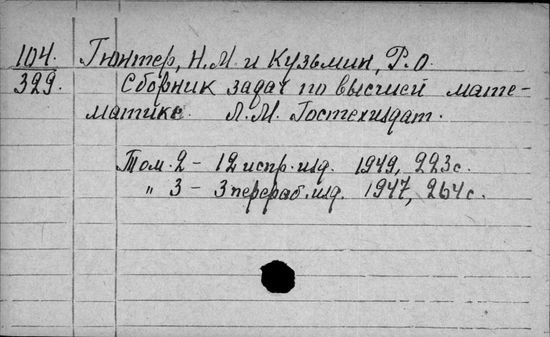 104. Гюнтер, Н.М. и Кузьмин, Р.О.
329. Сборник задач по высшей мате-
матике. Л.М. Гостехиздат.
Том. 2 – 12 испр. изд. 1949, 223 с.
" 3 – 3 перераб. изд. 1947, 264 с.